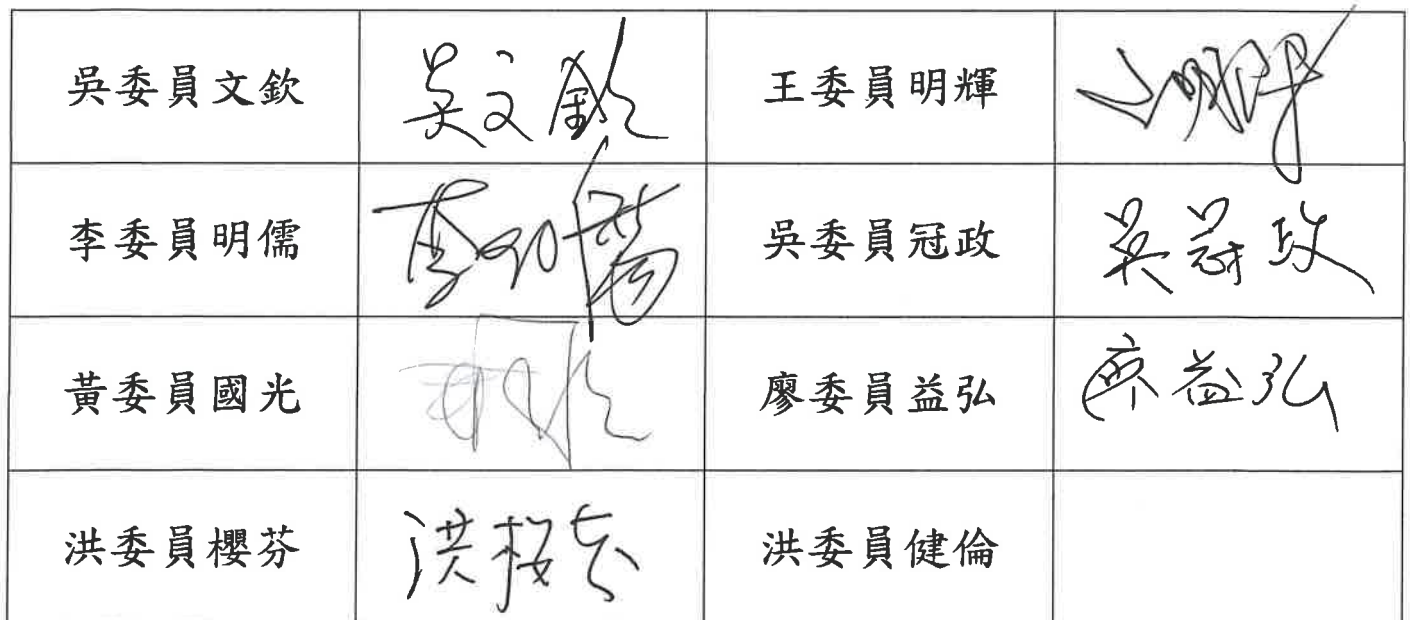 吳委員文欽 吳文欽 王委員明輝
李委員明儒 吳委員冠政 吳冠政
黃委員國光 廖委員益弘 廖益弘
洪委員櫻芬 洪櫻芬 洪委員健倫